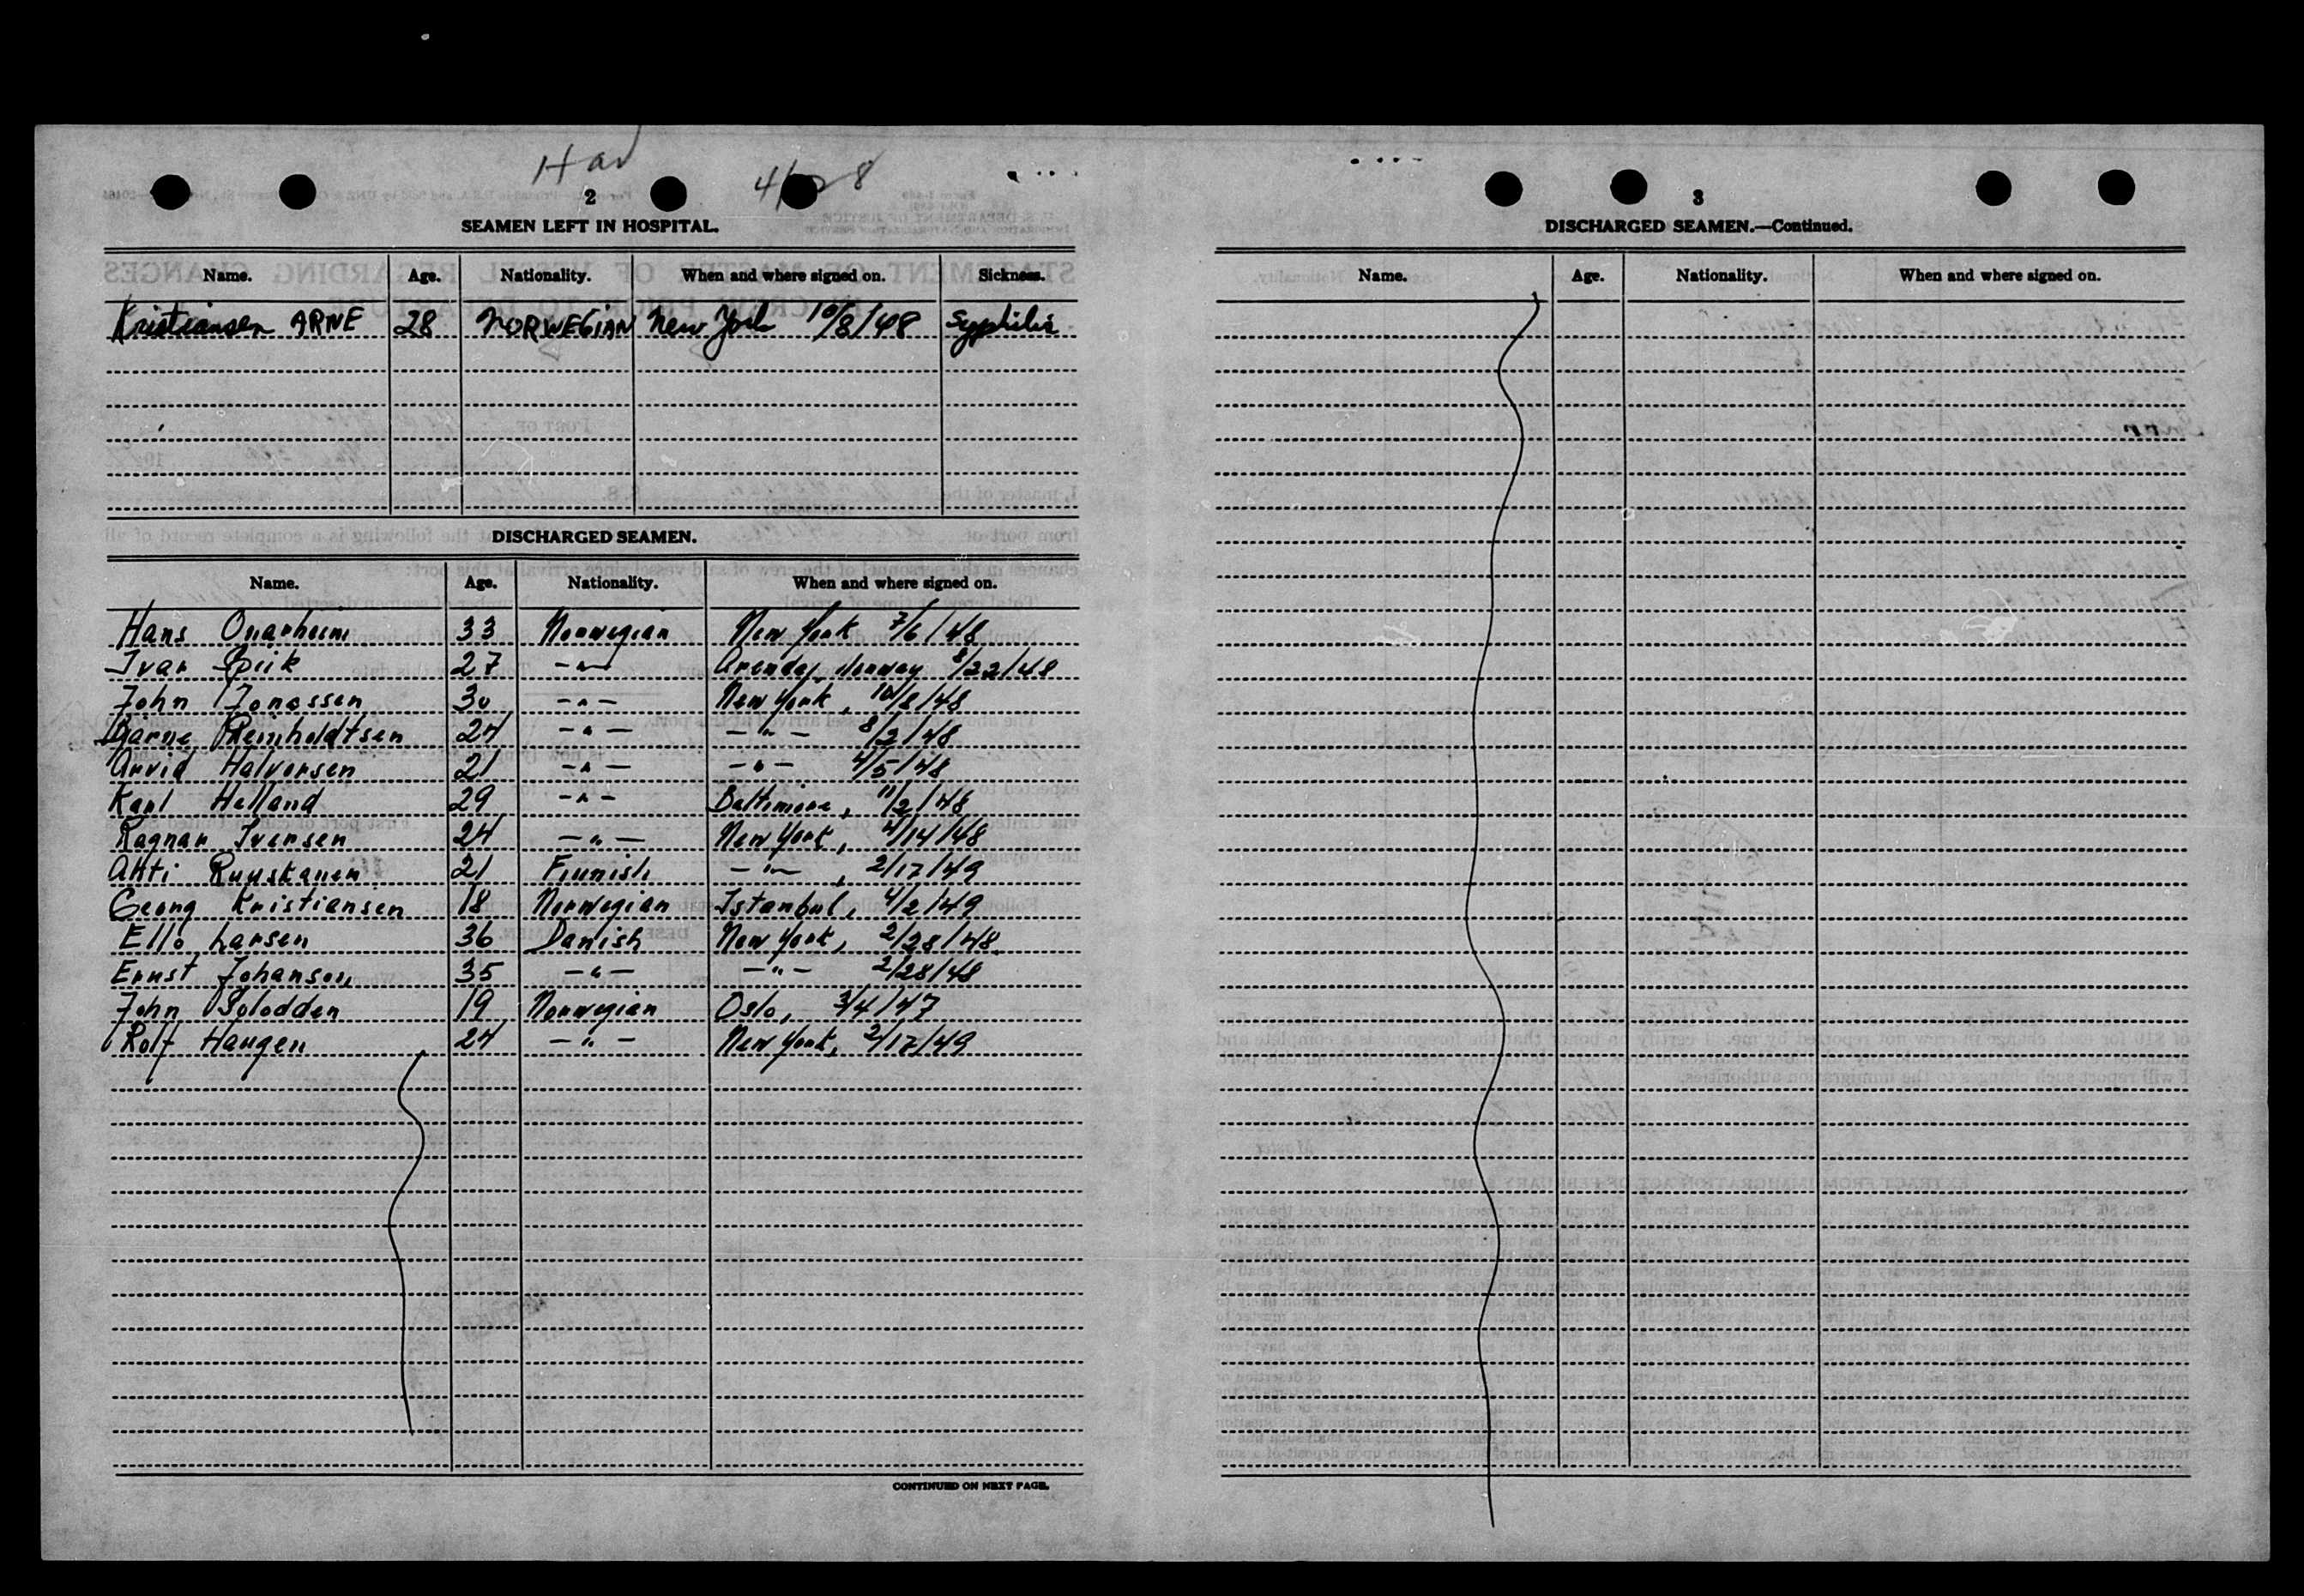 Har
4/28
2
SEAMEN LEFT IN HOSPITAL.
Name. Age. Nationality. When and where signed on. Sickness.
Kristiansen ARNE 28 NORWEGIAN New York 10/8/48 Syphilis
DISCHARGED SEAMEN.
Name. Age. Nationality. When and where signed on.
Hans Onarheim 33 Norwegian New York 7/6/48
Ivar 27 -"- Arendal, Norway 8/22/48
John Jonassen 30 -"- New York, 10/8/48
Bjarne Reinholdtsen 24 -"- -"- 8/2/48
Arvid Halvorsen 21 -"- -"- 4/5/48
Karl Helland 29 -"- Baltimore, 11/2/48
Ragnar Iversen 24 -"- New York, 4/14/48
Ahti Ruuskanen 21 Finnish -"-, 2/17/49
Georg Kristiansen 18 Norwegian Istanbul, 4/2/49
Ello Larsen 36 Danish New York, 2/28/48
Ernst Johansen, 35 -"- -"- 2/28/48
John Solodden 19 Norwegian Oslo, 3/4/47
Rolf Haugen 24 -"- New York, 2/17/49
CONTINUED ON NEXT PAGE.
3
DISCHARGED SEAMEN.—Continued.
Name. Age. Nationality. When and where signed on.